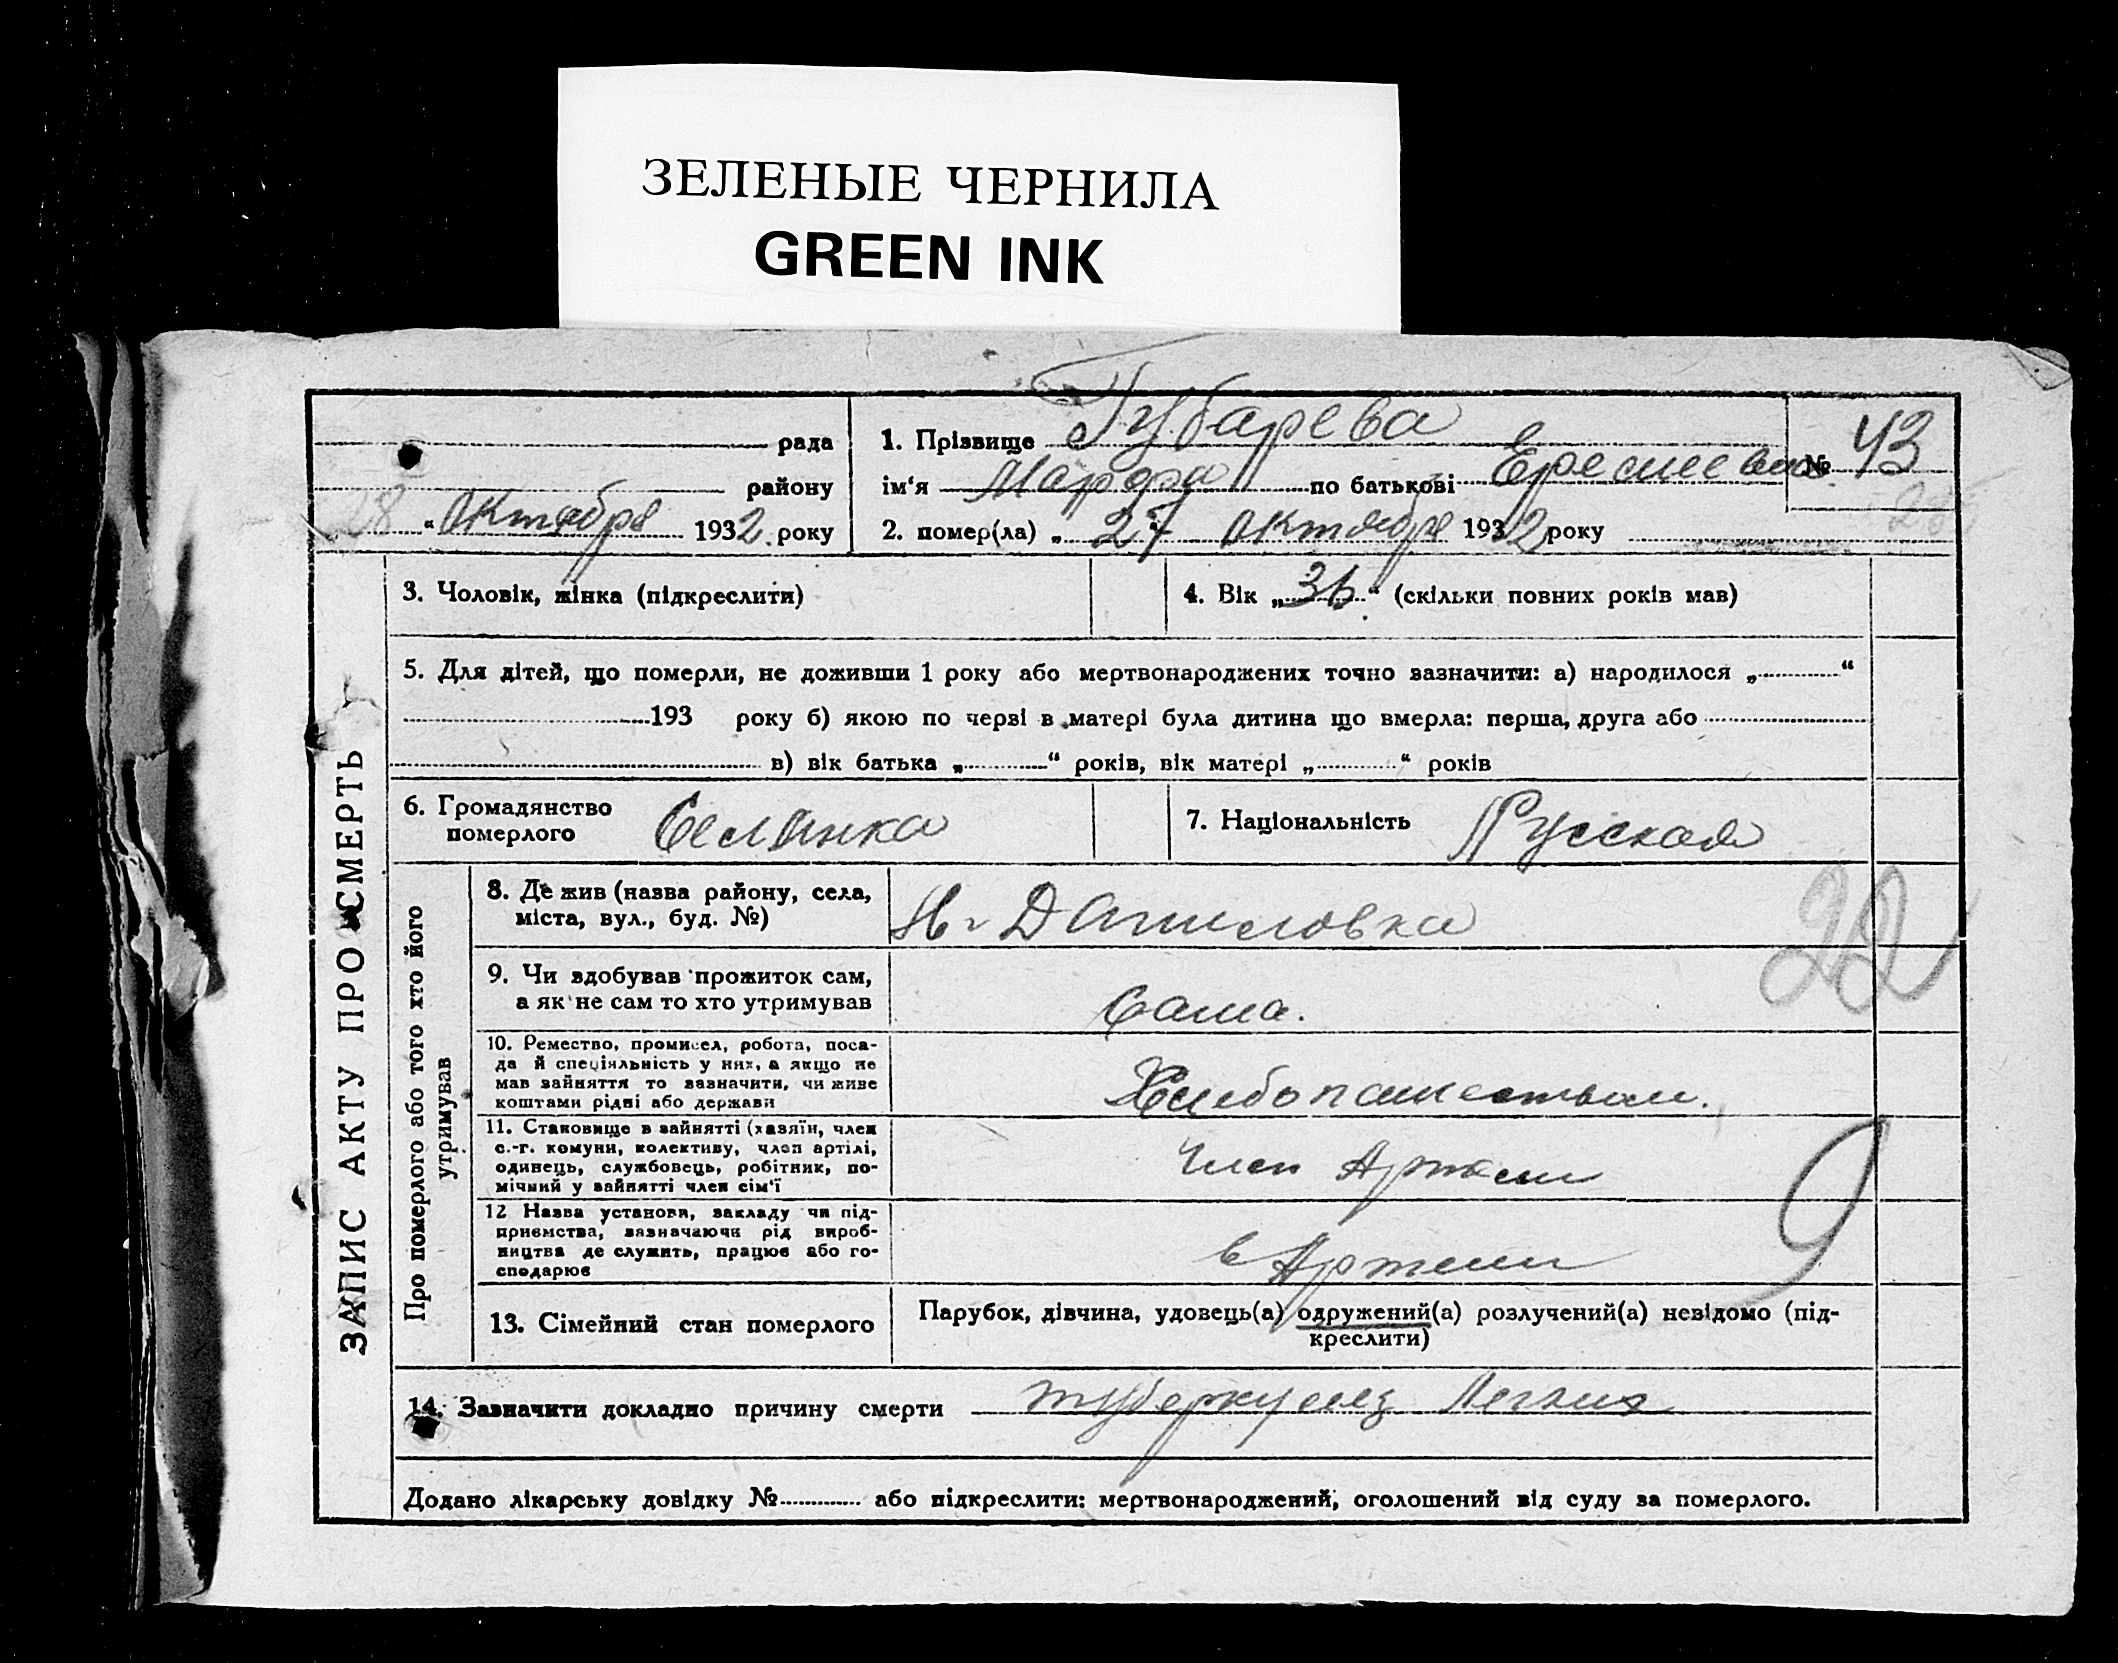 ЗЕЛЕНЫЕ ЧЕРНИЛА
GREEN INK
рада
району
28 " Октября 1932 року
1. Прізвище Губарева
ім'я Марфа по батькові Еремеевна
№ 43
2. помер(ла) „ 27 Октября 1932 року
ЗАПИС АКТУ ПРО СМЕРТЬ
3. Чоловік, жінка (підкреслити)
4. Вік „36“ (скільки повних років мав)
5. Для дітей, що померли, не доживши 1 року або мертвонароджених точно зазначити: а) народилося „ “
193 року б) якою по черві в матері була дитина що вмерла: перша, друга або
в) вік батька „ “ років, вік матері „ “ років
6. Громадянство
померлого Селянка
7. Національність Русская
Про померлого або того хто його
утримував
8. Де жив (назва району, села,
міста, вул., буд. №)
Н-Даниловка
22
9. Чи здобував прожиток сам,
а як не сам то хто утримував
Сама.
10. Ремество, промисел, робота, поса-
да й спеціяльність у них, а якщо не
мав зайняття то зазначити, чи живе
коштами рідні або держави
Хлебопашеством.
11. Становище в зайнятті (хазяїн, член
с.-г. комуни, колективу, член артілі,
одинець, службовець, робітник, по-
мічний у зайнятті член сім'ї
Член Артели
9
12 Назва установи, закладу чи під-
приємства, зазначаючи рід вироб-
ництва де служить, працює або го-
сподарює
в Артели
13. Сімейний стан померлого
Парубок, дівчина, удовець(а) одружений(а) розлучений(а) невідомо (під-
креслити)
14. Зазначити докладно причину смерти туберкулез Легких
Додано лікарську довідку № або підкреслити: мертвонароджений, оголошений від суду за померлого.